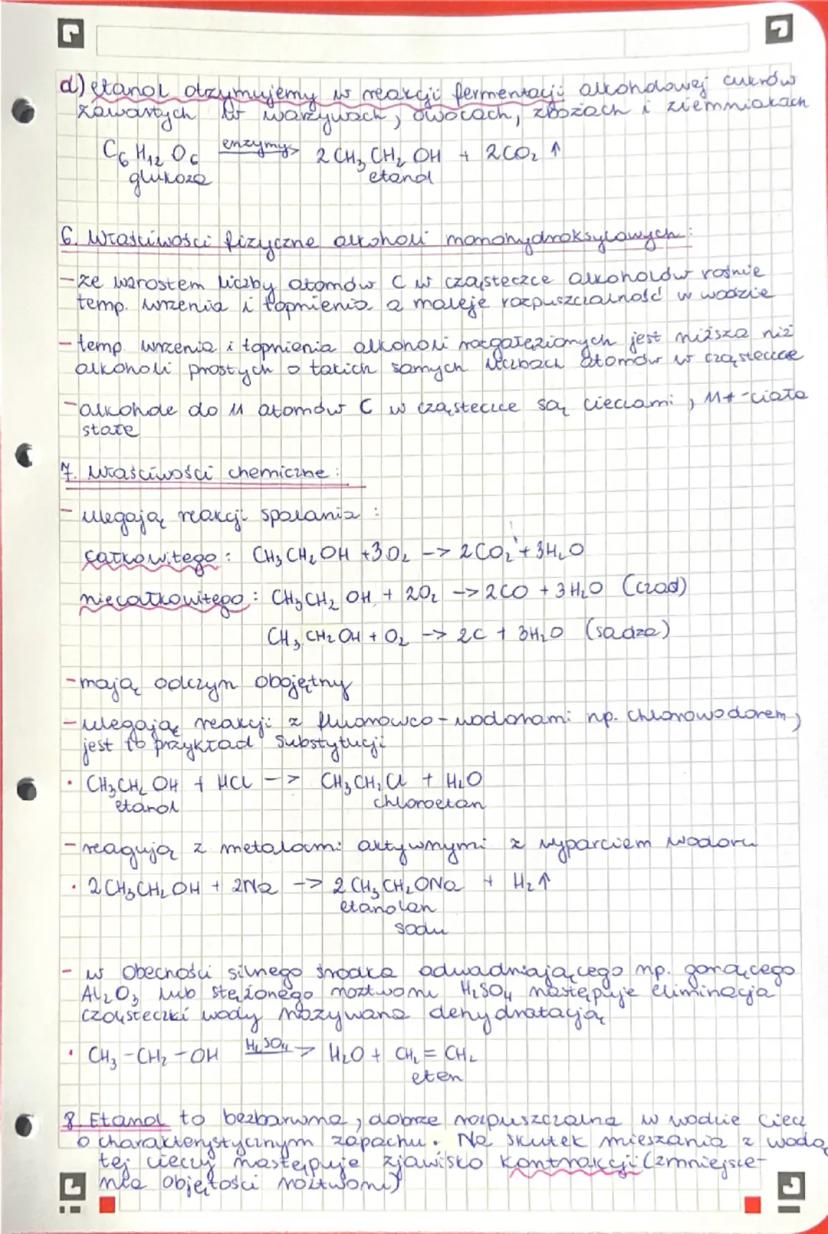 d) etanol otrzymujemy w reakcji fermentacji alkoholowej cukrów
zawartych w warzywach, owocach, zbożach i ziemniakach
C₆H₁₂O₆ enzymy> 2CH₃CH₂OH + 2CO₂ ↑
glukoza etanol
6. Właściwości fizyczne alkoholi monohydroksylowych:
- ze wzrostem liczby atomów C w cząsteczce alkoholów rośnie
temp. wrzenia i topnienia a maleje rozpuszczalność w wodzie
- temp wrzenia i topnienia alkoholi rozgałęzionych jest niższa niż
alkoholi prostych o takich samych liczbach atomów w cząsteczce
- alkohole do 11 atomów C w cząsteczce są cieczami, 11+ - ciała
stałe
7. Właściwości chemiczne:
- ulegają reakcji spalania:
całkowitego: CH₃CH₂OH + 3O₂ -> 2CO₂ + 3H₂O
niecałkowitego: CH₃CH₂OH + 2O₂ -> 2CO + 3H₂O (czad)
CH₃CH₂OH + O₂ -> 2C + 3H₂O (sadza)
- mają odczyn obojętny
- ulegają reakcji z fluorowco-wodorami np. chlorowodorem,
jest to przykład substytucji
• CH₃CH₂OH + HCl -> CH₃CH₂Cl + H₂O
etanol chloroetan
- reagują z metalami aktywnymi z wyparciem wodoru
• 2CH₃CH₂OH + 2Na -> 2CH₃CH₂ONa + H₂↑
etanolan
sodu
- w obecności silnego środka odwadniającego np. gorącego
Al₂O₃ lub stężonego roztworu H₂SO₄ następuje eliminacja
cząsteczki wody nazywana dehydratacją
• CH₃-CH₂-OH H₂SO₄> H₂O + CH₂=CH₂
eten
8. Etanol to bezbarwna, dobrze rozpuszczalna w wodzie ciecz
o charakterystycznym zapachu. Na skutek mieszania z wodą
tej cieczy następuje zjawisko kontrakcji (zmniejsze-
nia objętości roztworu)